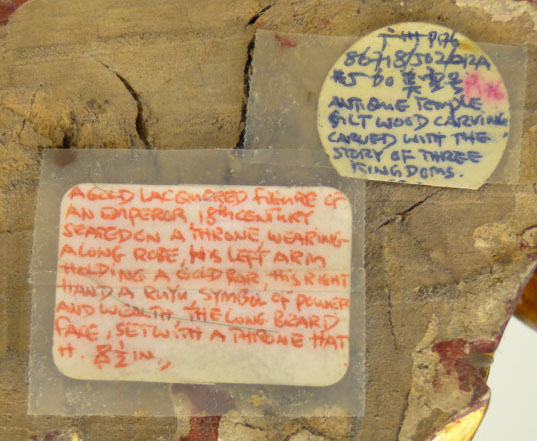 P.96
86718/502/012A
ANTIQUE TEMPLE
GILT WOOD CARVING
CARVED WITH THE
STORY OF THREE
KINGDOMS.
A GOLD LACQUERED FIGURE OF
AN EMPEROR, 18TH CENTURY
SEATED ON A THRONE, WEARING
A LONG ROBE, HIS LEFT ARM
HOLDING A GOLD BAR, HIS RIGHT
HAND A RUYU SYMBOL OF POWER
AND WEALTH THE LONG BEARD
FACE, SET WITH A THRONE HAT
H. 8½ IN,